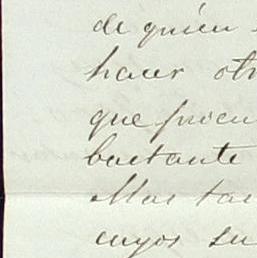 de quien
hacer otr
que procu
bastante
Mas tar
cuyos su